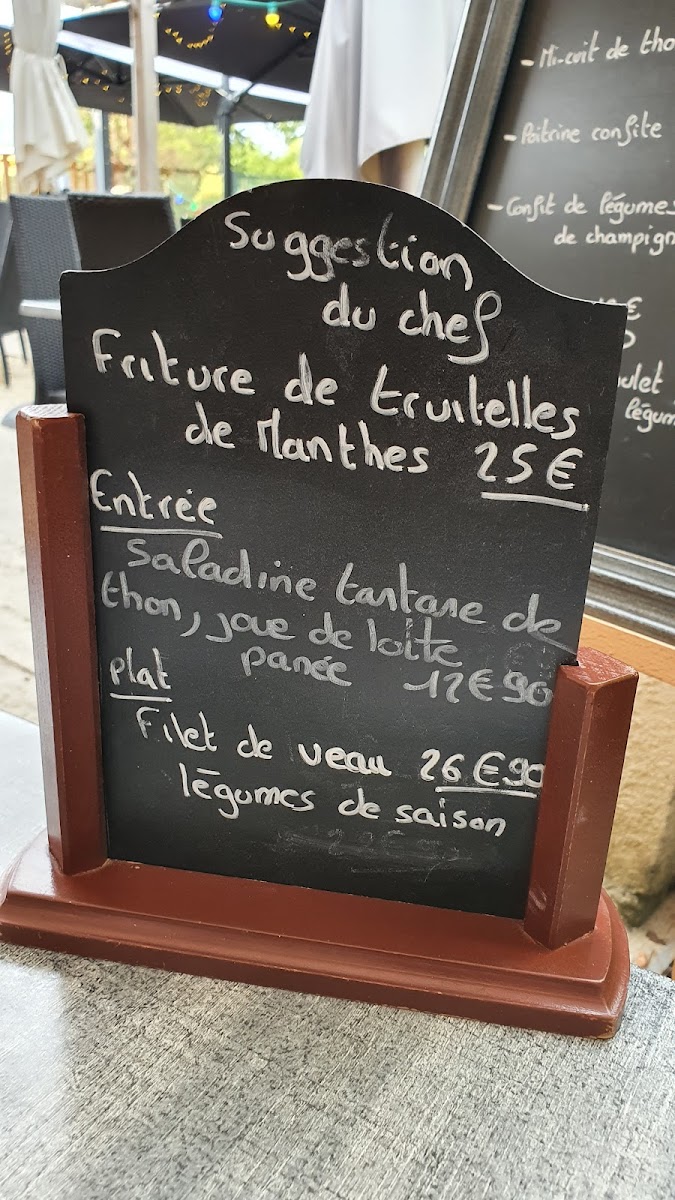 Suggestion
du chef
Friture de truitelles
de Manthes 25€
Entrée
Saladine tartare de
thon, joue de lotte
panée 12€90
plat
Filet de veau 26€90
légumes de saison
- Mi-cuit de tho
- Poitrine confite
- Confit de légumes
de champign
€
oulet
légum